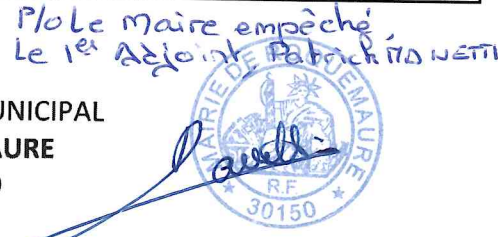 P/o Le Maire empêché,
Le 1er Adjoint, Patrick MANETTI
UNICIPAL
AURE
MAIRIE DE ROQUEMAURE
R.F
30150